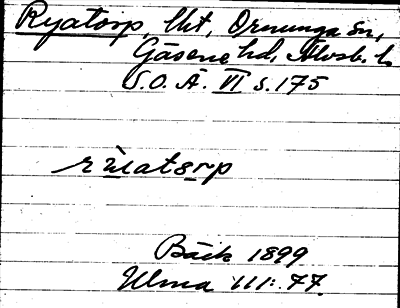 Ryatorp, lht, Ornunga sn,
Gäsene hd, Älvsb. l.
S.O.Ä. VI s. 175
Bäck 1899
Ulma 111:77